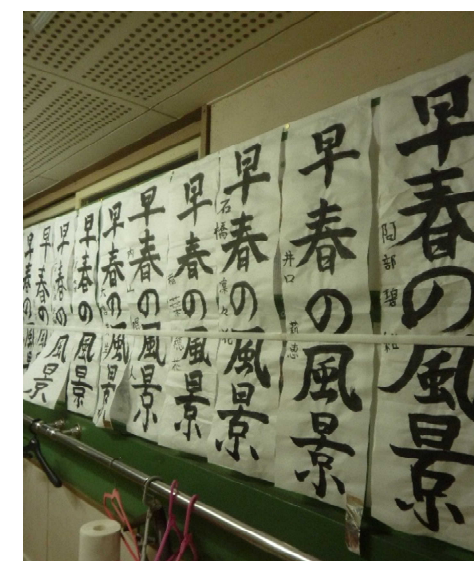 早春の風景
阿部碧
早春の風景
井口
早春の風景
石橋
早春の風景
早春の風景
内山
早春の風景
早春の風景
早春の風景
早春の風景
早春の風